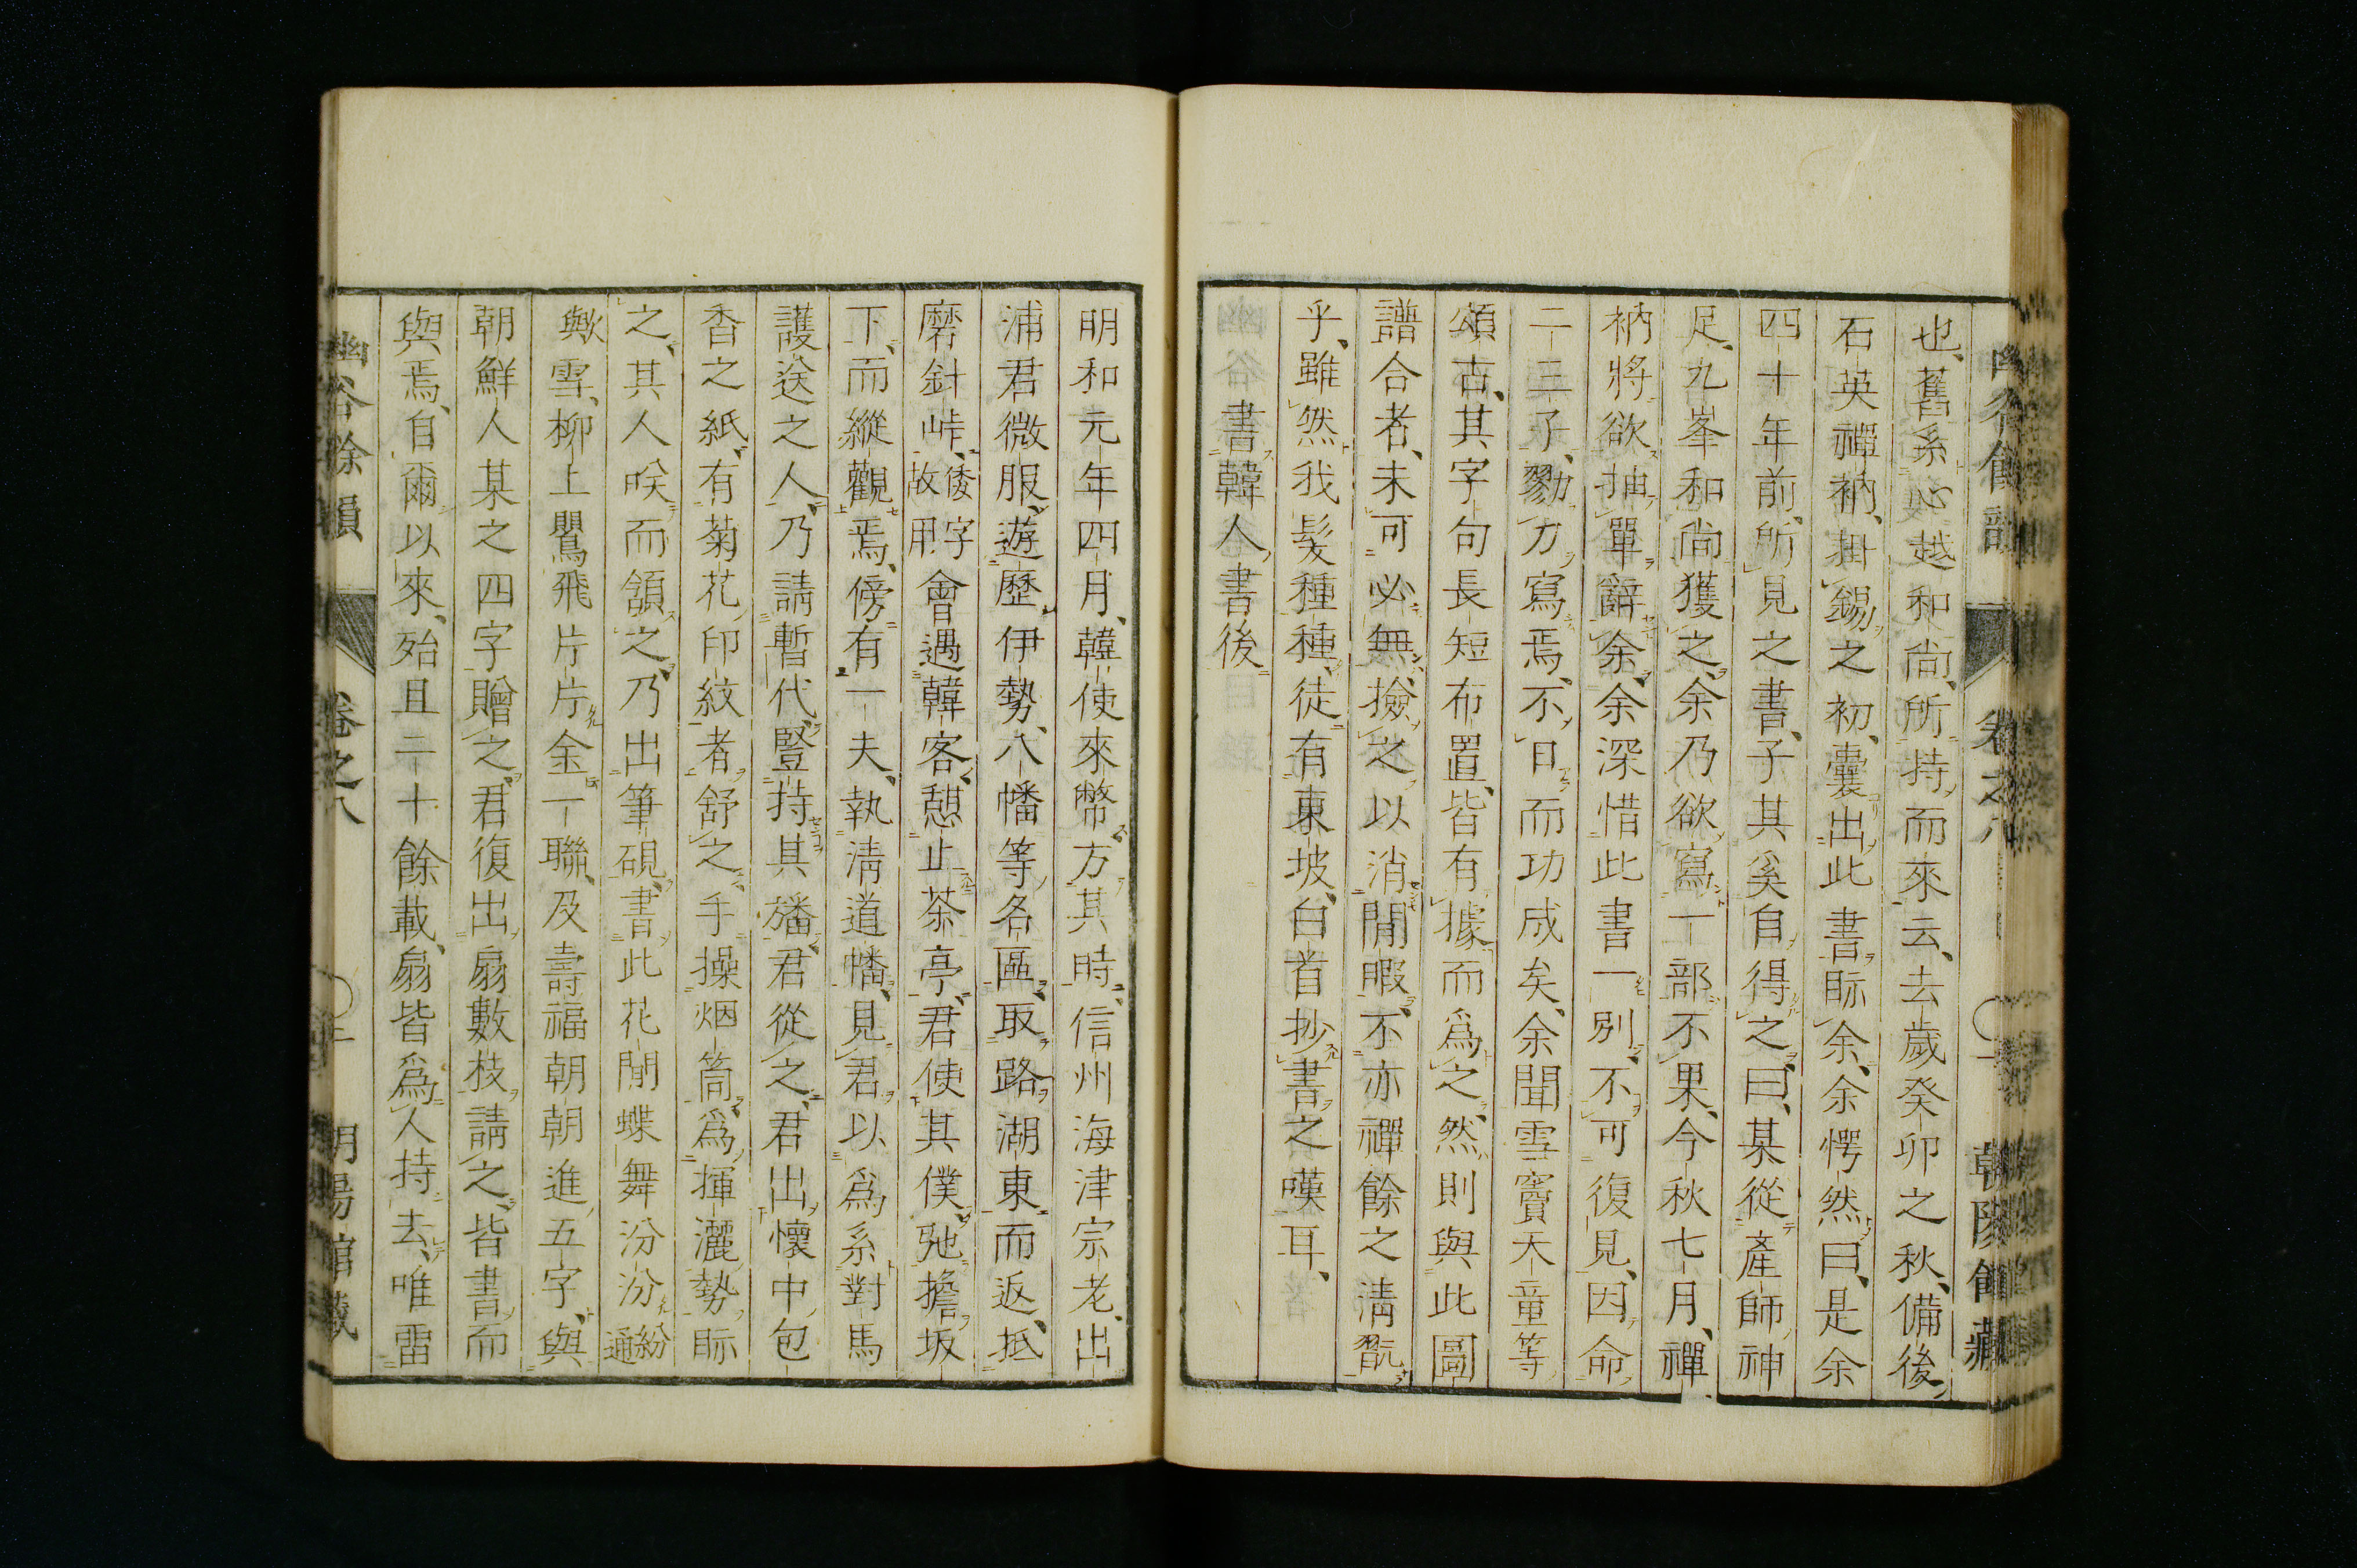 也、舊系心越和尚所持而來云、去歲癸卯之秋、備後
石英禪衲、掛錫之初、囊出此書、眎余、余愕然曰、是余
四十年前、所見之書、子其奚自得之、曰、某從產師神
足、九峯和尚獲之、余乃欲寫一部不果、今秋七月、禪
衲將欲抽單辭余、余深惜此書一別、不可復見、因命
二三子、勠力寫焉、不日而功成矣、余聞雪竇天童等
頌古、其字句長短布置、皆有據而爲之、然則與此圖
譜合者、未可必無、撿之以消閒暇、不亦禪餘之淸翫
乎、雖然我髮種種、徒有東坡、白首抄書之嘆耳、
書韓人書後
明和元年四月、韓使來幣、方其時、信州海津宗老、出
浦君微服、遊歷伊勢、八幡等名區、取路湖東而返、抵
磨針峠、倭字故用會遇韓客、憇止茶亭、君使其僕、弛擔坂
下、而縱觀焉、傍有一夫、執淸道幡、見君、以爲系對馬
護送之人、乃請暫代豎持其旛、君從之、君出懷中包
香之紙、有菊花印紋者、舒之、手操烟筒、爲揮灑勢、眎
之、其人咲而頷之、乃出筆硯、書此花閒蝶舞汾汾紛通
歟雪、柳上鸎飛片片金一聯、及壽福朝朝進五字、與
朝鮮人某之四字贈之、君復出扇數枝請之、皆書而
與焉、自爾以來、殆且二十餘載、扇皆爲人持去、唯畱
幽谷餘韻 卷之八